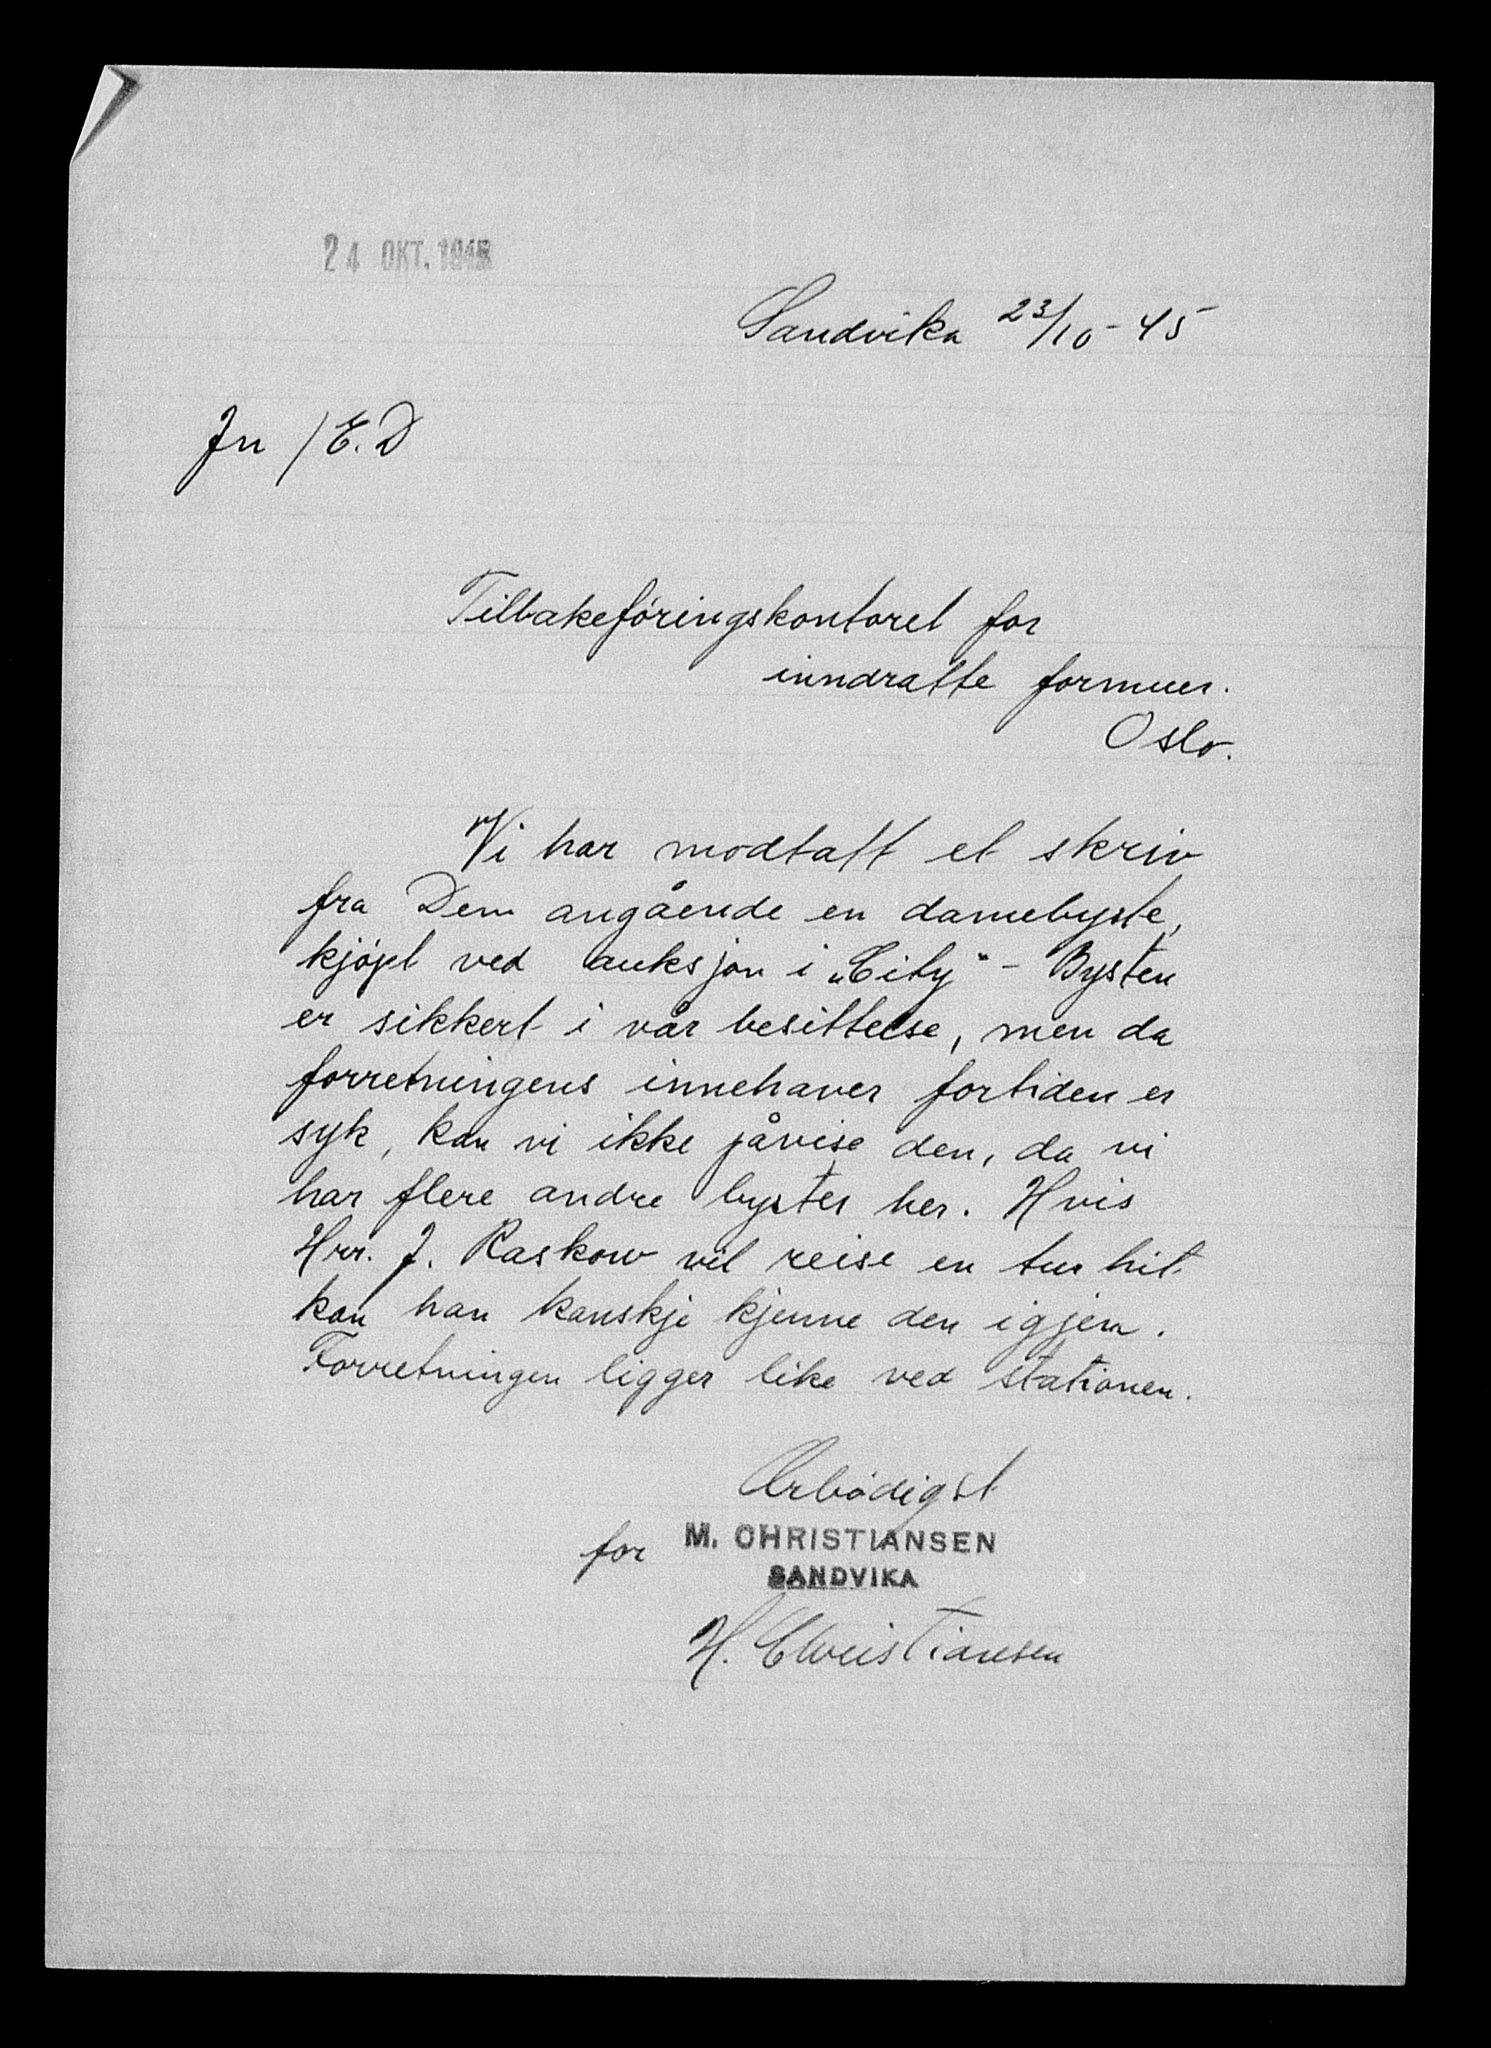 24 OKT. 1945
Sandvika 23/10-45
Jn / E.D
Tilbakeføringskontoret for
inndratte formuer.
Oslo.
Vi har modtatt et skriv
fra Dem angående en damebyste,
kjøpt ved auksjon i „City" - Bysten
er sikkert i vår besittelse, men da
forretningens innehaver fortiden er
syk, kan vi ikke påvise den, da vi
har flere andre byster her. Hvis
Hrr. J. Raskow vil reise en tur hit
kan han kanskje kjenne den igjen.
Forretningen ligger like ved stationen.
Ærbødigst
for M. CHRISTIANSEN
SANDVIKA
H. Christiansen